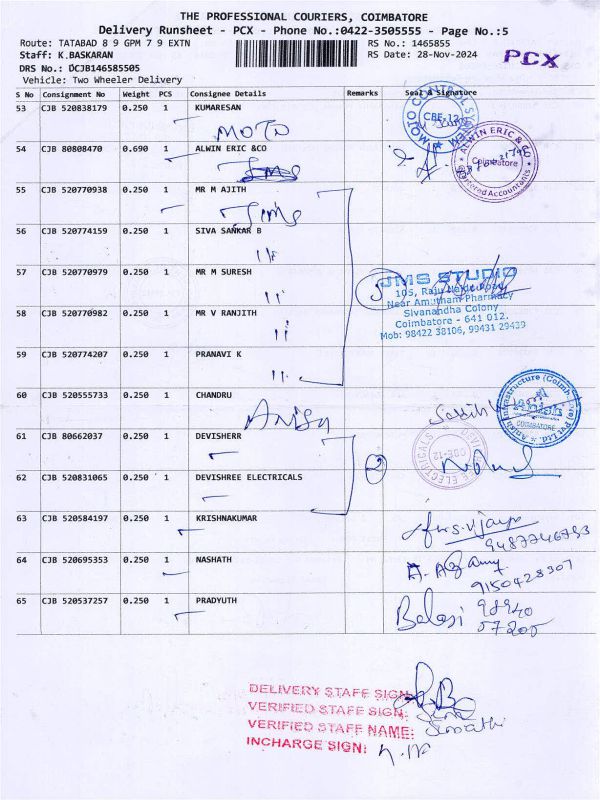 THE PROFESSIONAL COURIERS, COIMBATORE
Delivery Runsheet - PCX - Phone No.:0422-3505555 - Page No.:5
Route: TATABAD 8 9 GPM 7 9 EXTN
Staff: K.BASKARAN
DRS No.: OCJB146585505
Vehicle: Two Wheeler Delivery
RS No.: 1465855
RS Date: 28-Nov-2024
PCX
S No Consignment No Weight PCS Consignee Details Remarks Seal & Signature
53 CJB 520838179 0.250 1 KUMARESAN
MOTO
CBE-12
54 CJB 80808470 0.690 1 ALWIN ERIC &CO
ALWIN ERIC & CO
Coimbatore
Chartered Accountants
55 CJB 520770938 0.250 1 MR M AJITH
Jms
56 CJB 520774159 0.250 1 SIVA SANKAR B
11
57 CJB 520770979 0.250 1 MR M SURESH
11
58 CJB 520770982 0.250 1 MR V RANJITH
11
59 CJB 520774207 0.250 1 PRANAVI K
11
5
JMS STUDIO
105, Raju Naidu Road
Near Amutham Pharmacy
Sivanandha Colony
Coimbatore - 641 012.
Mob: 98422 38106, 99431 29429
60 CJB 520555733 0.250 1 CHANDRU
Anisa
COIMBATORE
61 CJB 80662037 0.250 1 DEVISHERR
2
62 CJB 520831065 0.250 1 DEVISHREE ELECTRICALS
CBE-12
63 CJB 520584197 0.250 1 KRISHNAKUMAR
9487746793
64 CJB 520695353 0.250 1 NASHATH
9150428307
65 CJB 520537257 0.250 1 PRADYUTH
Balaji 98940
57205
DELIVERY STAFF SIGN:
VERIFIED STAFF SIGN:
VERIFIED STAFF NAME:
INCHARGE SIGN: